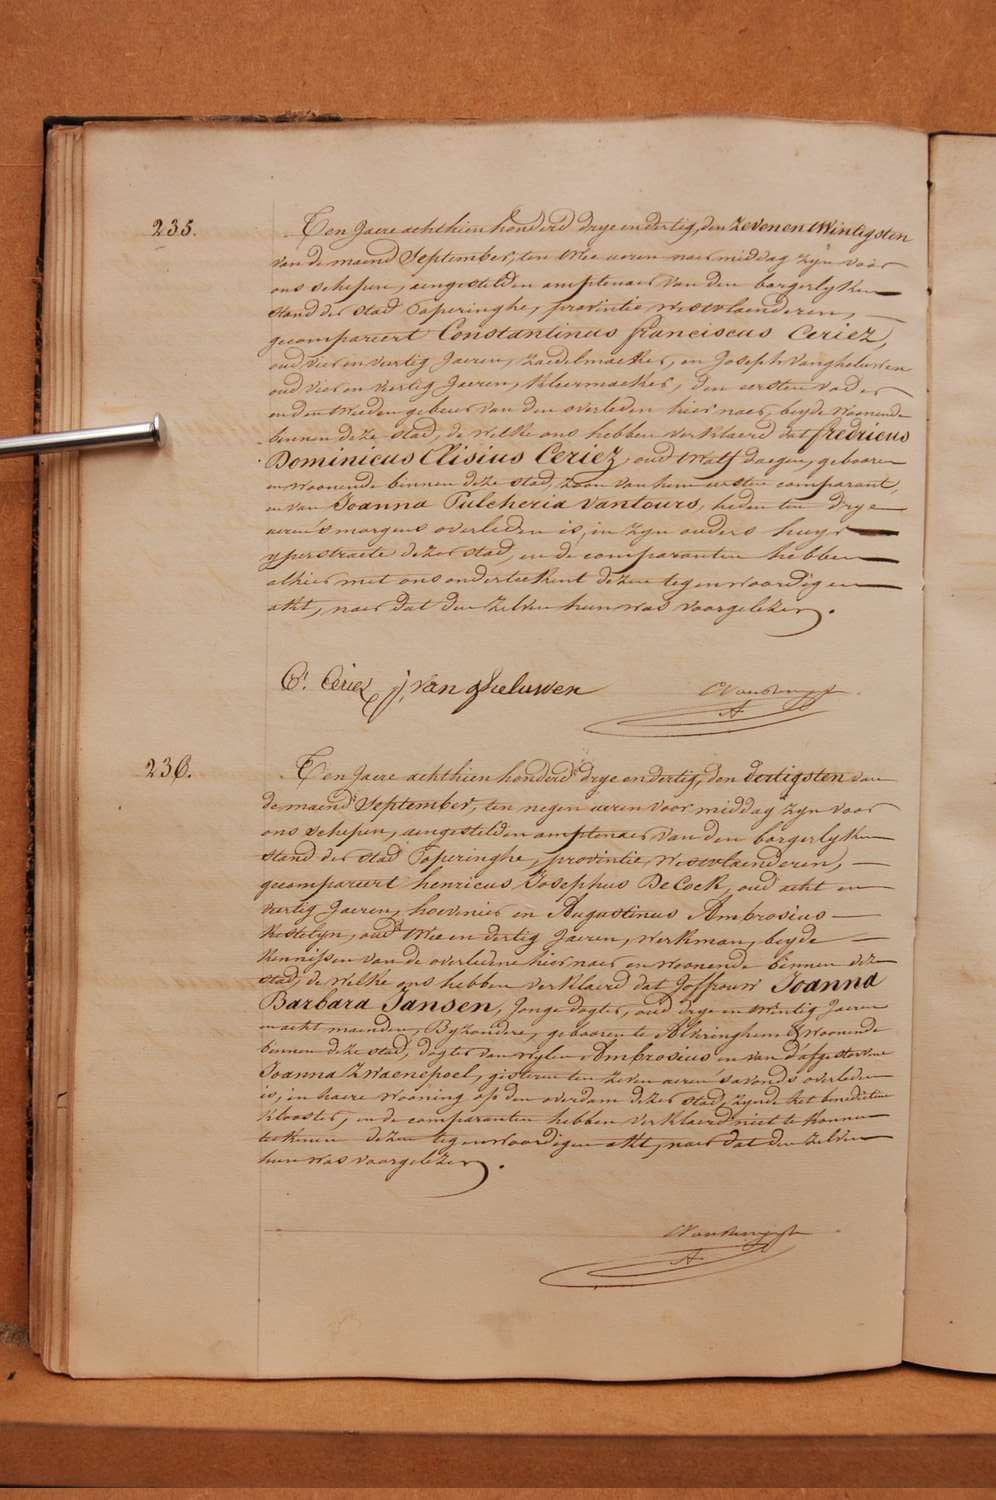 235.
Ten Jaere achthien honderd drye en dertig, den zevenentwintigsten
van de maend September, ten twee ueren naer middag zyn voor
ons schepen, aengestelden amptenaer van den borgerlyken
stand der stad Poperinghe, provintie, westvlaenderen,
gecompareert Constantinus franciscus Ceriez,
oud vier en veertig Jaeren, zaedelmaeker, en Joseph Vangheluwen
oud vier en veertig Jaeren, kleermaeker, den eersten vader
en den tweeden gebeur van den overleden hier naer, beyde woonende
binnen deze stad, de welke ons hebben verklaerd dat fredricus
Dominicus Elisius Ceriez, oud twalf daegen, gebooren
en woonende binnen deze stad, zoon van hun eersten comparant,
en van Joanna Pulcheria Vantours, heden ten drye
ueren 's morgens overleden is, in zyn ouders huys
yperstraete dezer stad, en de comparanten hebben
alhier met ons onderteekent dezen tegenwoordigen
akt, naer dat den zelven hun was voorgelezen.
C. Ceriez J, van gheluwen
236.
Ten Jaere achthien honderd drye en dertig, den dertigsten van
de maend September, ten negen ueren voor middag zyn voor
ons schepen, aengestelden amptenaer van den borgerlyken
stand der stad Poperinghe, provintie, westvlaenderen,
gecompareert henricus Josephus DeCock, oud acht en
veertig Jaeren, hovenier en Augustinus Ambrosius
Kestelyn, oud twee en dertig Jaeren, werkman, beyde
kennissen van de overledene hier naer en woonende binnen deze
stad, de welke ons hebben verklaerd dat Joffrouw Joanna
Barbara Jansen, Jonge dogter, oud drye en twintig Jaeren
en acht maenden, Byzondere, gebooren te Alveringhem & woonende
binnen deze stad, dogter van wylen Ambrosius en van d'afgestorvene
Joanna Zwaenepoel, gisteren ten zeven ueren 's avonds overleden
is, in haere wooning op den overdam dezer stad, zynde het benedictine
klooster, en de comparanten hebben verklaerd niet te konnen
teekenen dezen tegenwoordigen akt, naer dat den zelven
hun was voorgelezen.